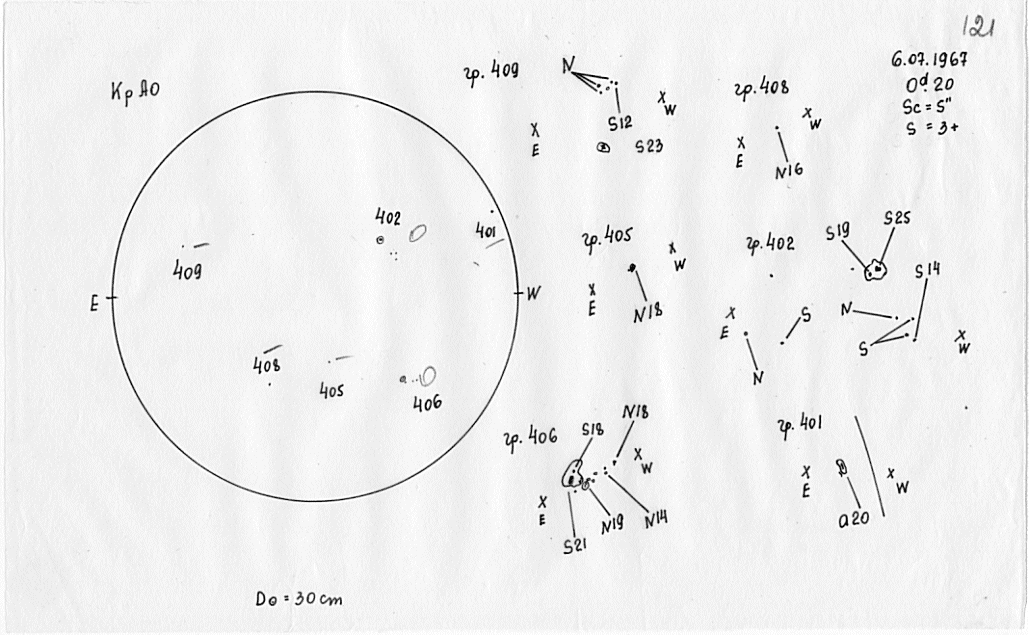 121
6.07.1967
0ᵈ.20
Sc = 5"
S = 3+
Кр АО
E
W
409
402
401
408
405
406
D⊙ = 30 cm
гр. 409
N
S12
S23
X
E
X
W
гр. 408
N16
X
E
X
W
гр. 405
N18
X
E
X
W
гр. 402
S19
S25
S14
N
S
S
N
X
E
X
W
гр. 406
S18
N18
N19
N14
S21
X
E
X
W
гр. 401
a20
X
E
X
W